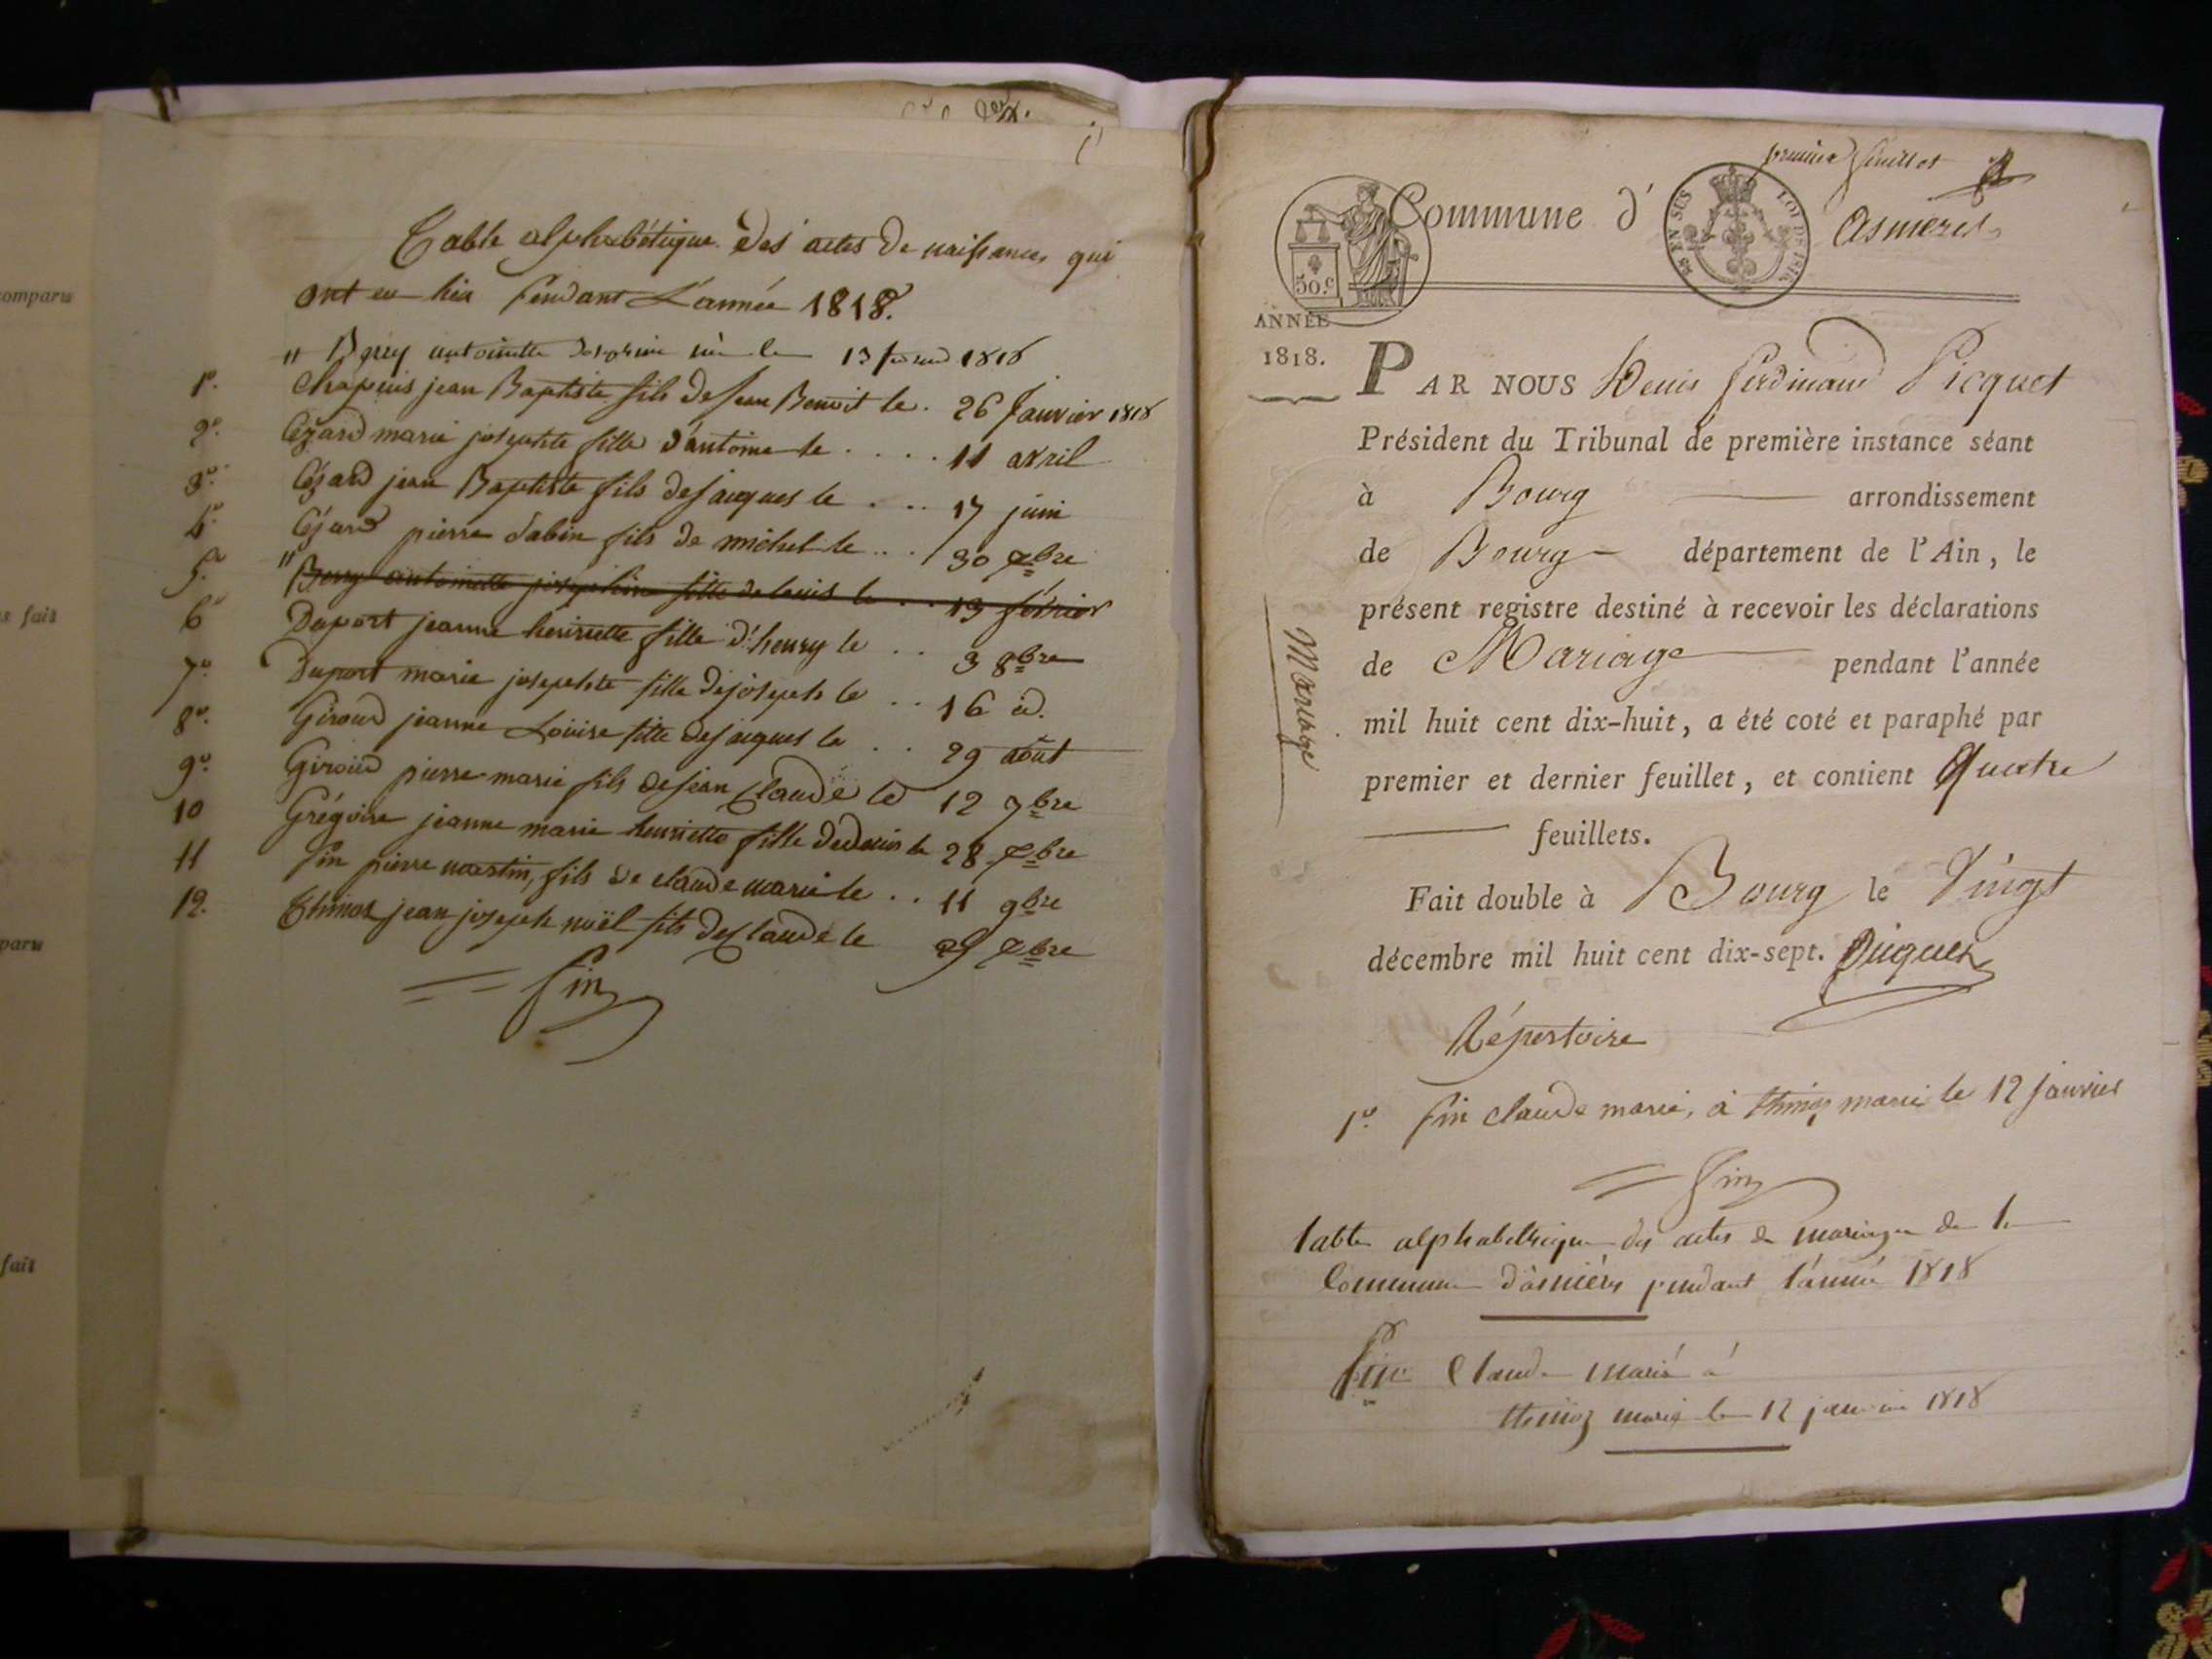 comparu
s fait
paru
fait
Table alphabétique des actes de naissances qui
ont eu lieu pendant L'année 1818.
" Berry antoinette née le 13 1818
1º. Chapuis jean Baptiste fils de Jean Benoit le . 26 Janvier 1818
2º. Cézard marie josephte fille d'antoine le . . . . . 11 avril
3º. Cézard jean Baptiste fils de jacques le . . . . 17 juin
4º. Cézard pierre Sabin fils de michel le . . . 30 xbre
5º. " Berry antoinette josephine fille de louis le . . . 13 février
6º Duport jeanne henriette fille d'henry le . . 3 8bre
7º. Duport marie josephte fille de joseph le . . 16 id.
8º. Giroud jeanne Louise fille de jacques le . . 29 août
9º. Giroud pierre marie fils de jean Claude le 12 7bre
10 Grégoire jeanne marie henriette fille de le 28 xbre
11 fin pierre martin, fils de claude marie le . . 11 9bre
12. thinoz jean joseph noël fils de Claude le 25 xbre
= fin
premier feuillet
Commune d' asnieres
50.c
ANNÉE
1818.
PAR NOUS Denis ferdinand Picquet
Président du Tribunal de première instance séant
à Bourg arrondissement
de Bourg département de l'Ain, le
présent registre destiné à recevoir les déclarations
de Mariage pendant l'année
mil huit cent dix-huit, a été coté et paraphé par
premier et dernier feuillet, et contient Quatre
feuillets.
Mariage
Fait double à Bourg le Vingt
décembre mil huit cent dix-sept. Picquet
Répertoire
1º. fin claude marie, à thinoz marie le 12 janvier
= fin
table alphabétique des actes de mariage de la
Commune d'asnières pendant l'année 1818
fin Claude marié à
thinoz marie le 12 janvier 1818